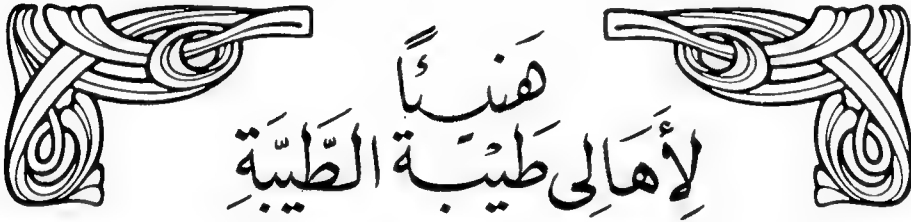 هَنيئًا
لِأَهَالِى طَيْبَة الطَّيِّبَةِ